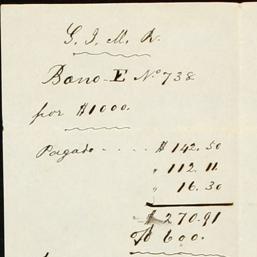 G. I. M. R.
Bono-E No. 738
por $1000.
Pagado .... $142.50
" 112.11
" 16.30
$270.91
600.